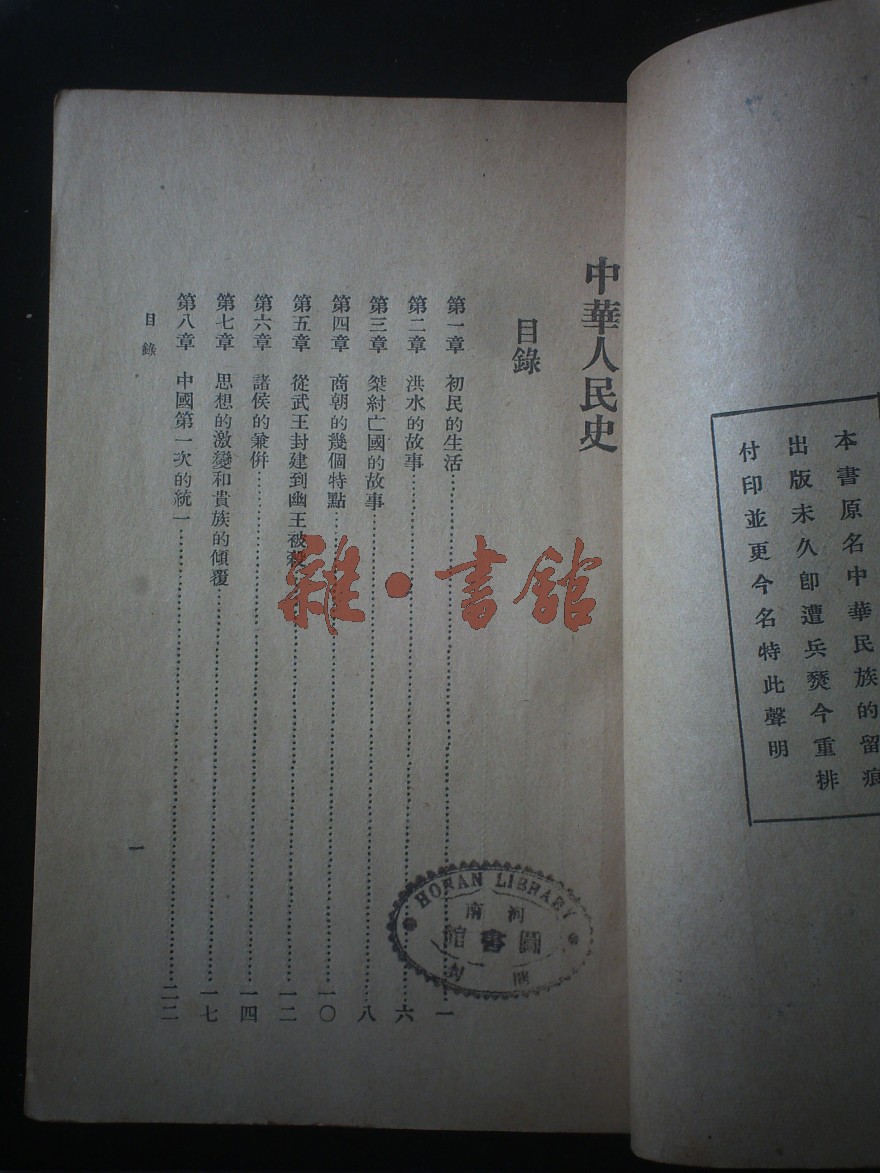 本書原名中華民族的留痕
出版未久卽遭兵燹今重排
付印並更今名特此聲明
中華人民史
目錄
第一章 初民的生活……一
第二章 洪水的故事……六
第三章 桀紂亡國的故事……八
第四章 商朝的幾個特點……一〇
第五章 從武王封建到幽王被殺……一二
第六章 諸侯的兼併……一四
第七章 思想的激變和貴族的傾覆……一七
第八章 中國第一次的統一……二二
目錄
一
HONAN LIBRARY
河南
圖書館
開封
雜·書館